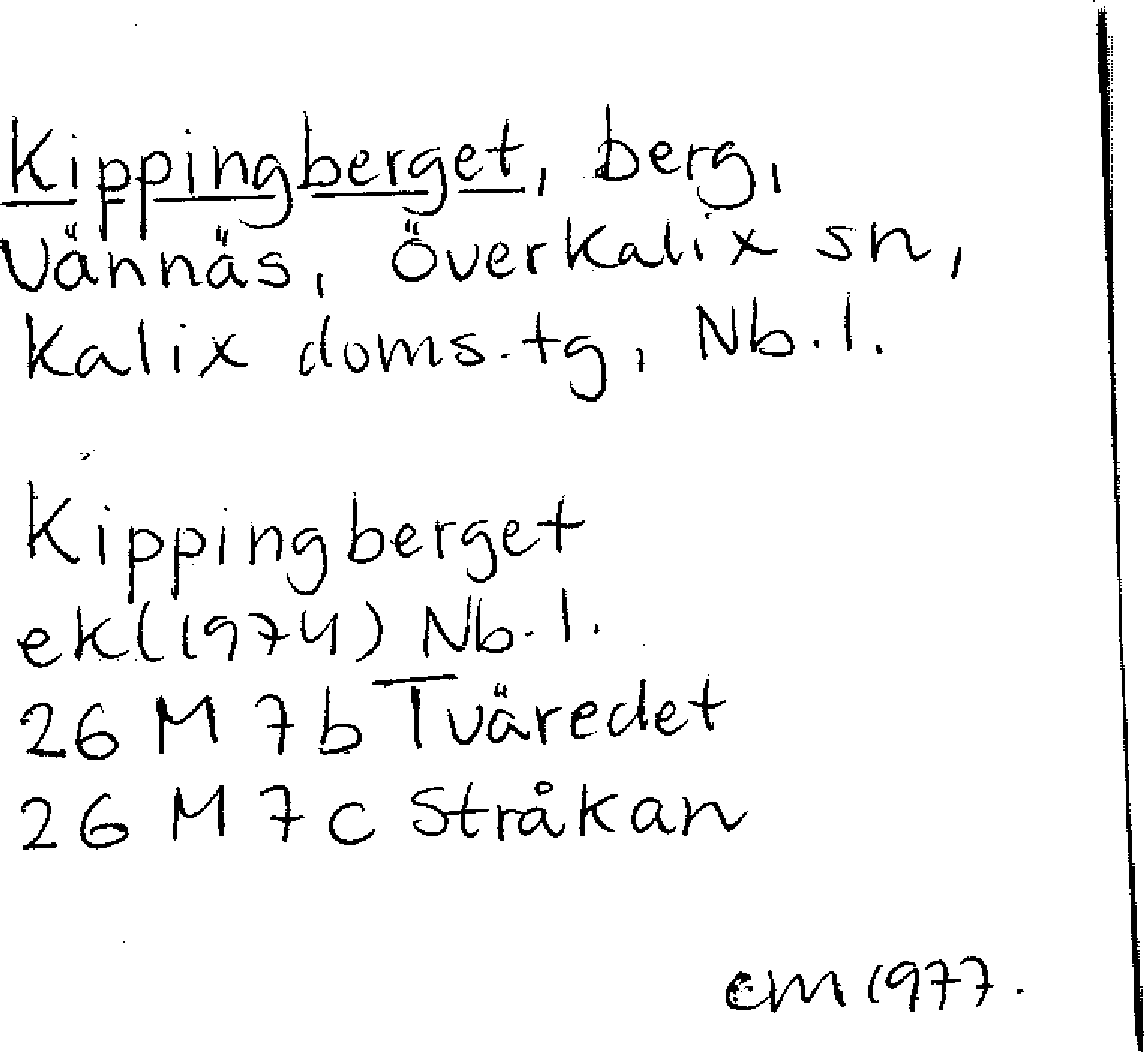 Kippingberget, berg,
Vännäs, Överkalix sn,
Kalix doms.tg, Nb.l.
Kippingberget
ek(1974) Nb.l.
26 M 7b Tväredet
26 M 7c Stråkan
cm 1977.